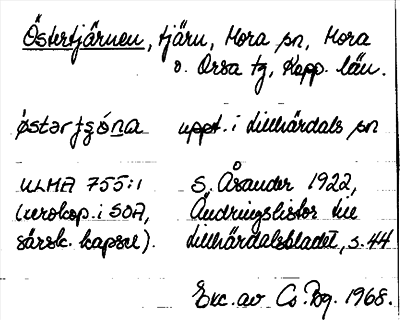 Östertjärnen, tjärn, Mora sn, Mora
o. Orsa tg, Kopp. län.
östərtʂóna uppt. i Lillhärdals sn
ULMA 755:1 S. Åsander 1922,
(xerokop. i SOA, Ändringslistor till
särsk. kapsel). Lillhärdalsbladet, s. 44
Exc. av Cs. Bg. 1968.